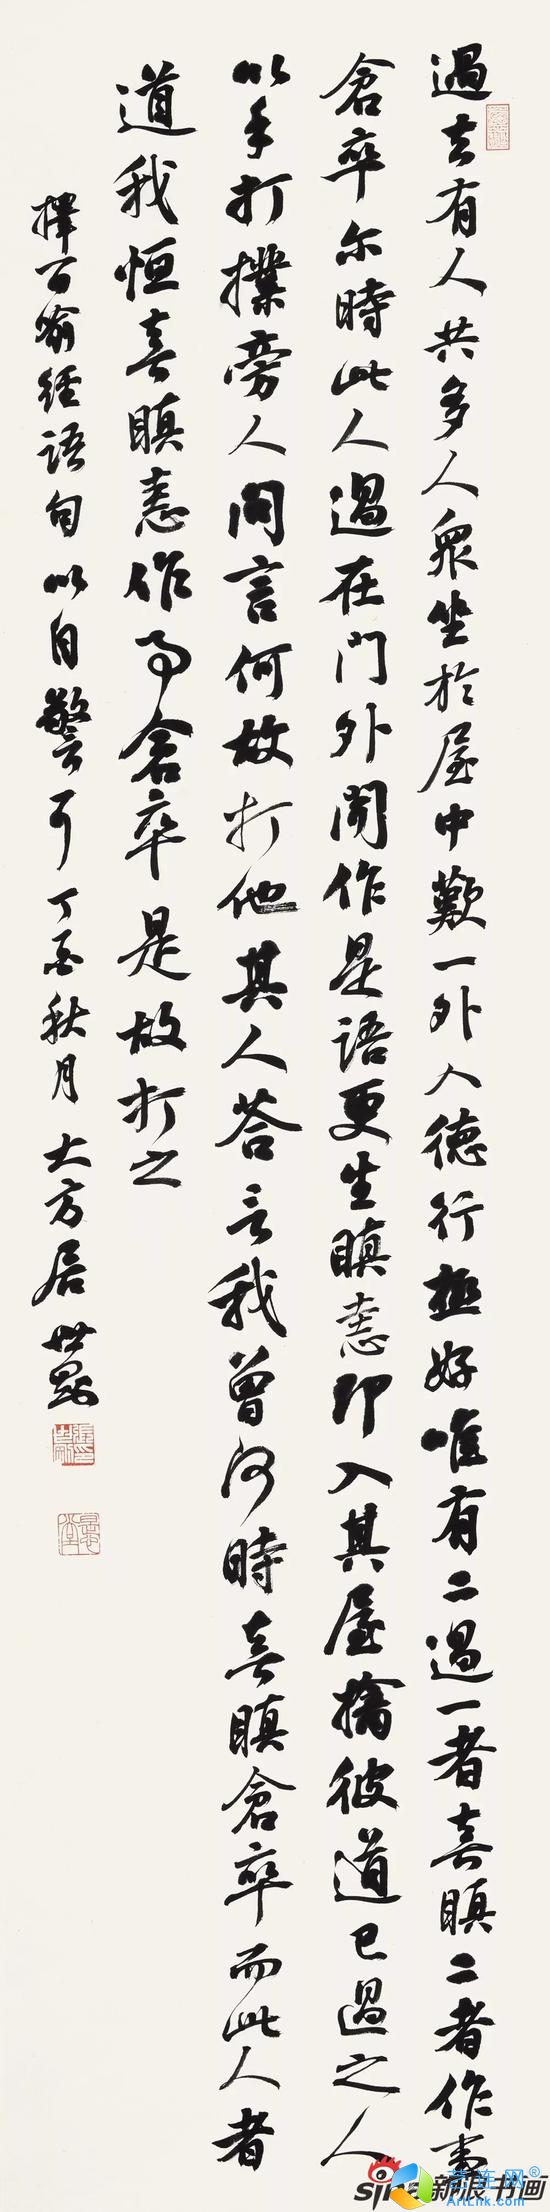 過去有人共多人眾坐於屋中歎一外人德行極好唯有二過一者喜瞋二者作事
倉卒尔時此人過在門外聞作是語更生瞋恚即入其屋擒彼道已過之人
以手打撲旁人問言何故打他其人答言我曾何時喜瞋倉卒而此人者
道我恒喜瞋恚作事倉卒是故打之
擇百喻經語句以自警耳丁酉秋月大方居世
sina新浪书画
芯连网®
ArtLink.com